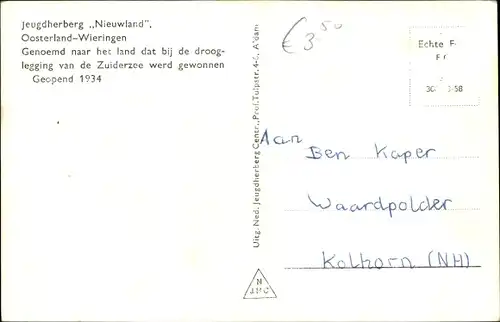 Jeugdherberg „Nieuwland”,
Oosterland–Wieringen
Genoemd naar het land dat bij de droog-
legging van de Zuiderzee werd gewonnen
Geopend 1934
€ 3.50
Uitg. Ned. Jeugdherberg Centr., Prof. Tulpstr. 4-6, A'dam
Echte F
F
30 58
Aan
Ben Kaper
Waardpolder
Kolhorn (NH)
N